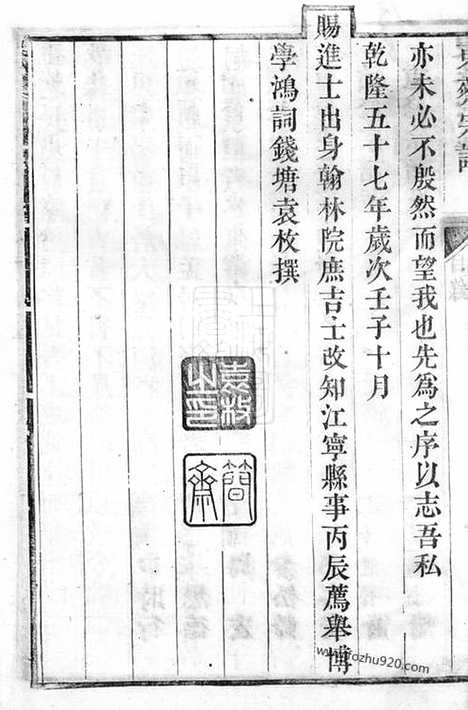 亦未必不殷然而望我也先為之序以志吾私
乾隆五十七年歲次壬子十月
賜進士出身翰林院庶吉士改知江寧縣事丙辰薦舉博
學鴻詞錢塘袁枚撰
袁枚之印
簡齋
www.fozhu920.com